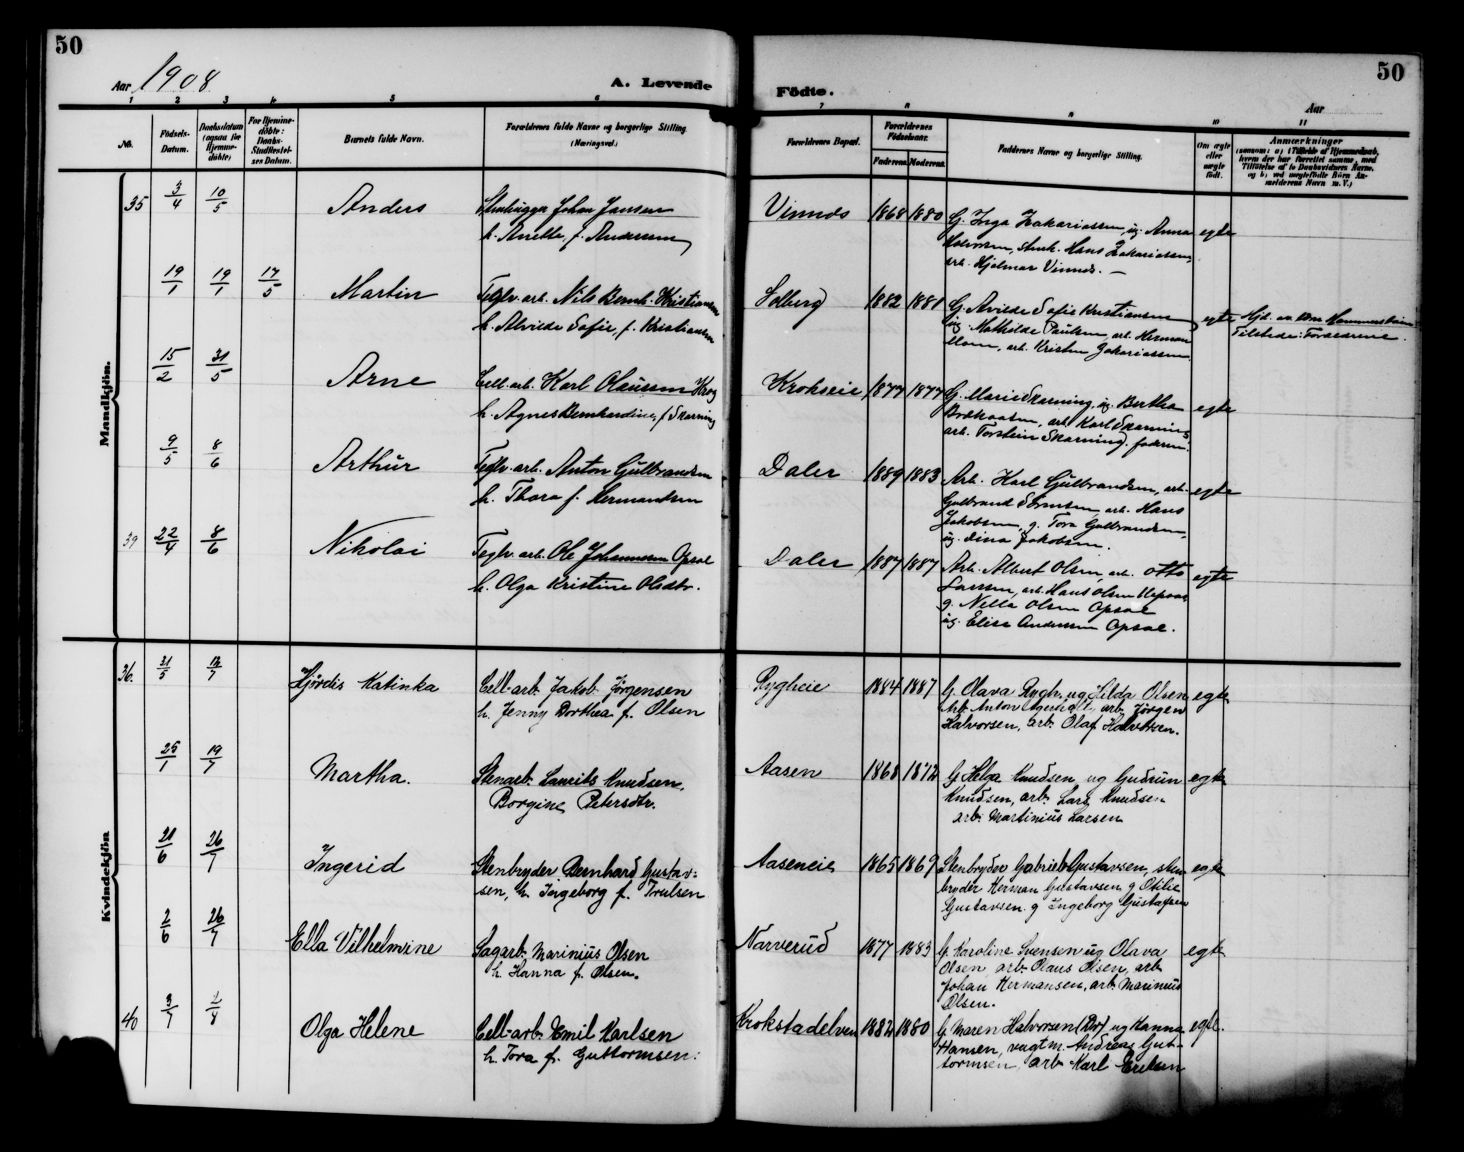 50
50
Aar 1908
A. Levende
Födte.
Aar
1 2 3 4 5 6 7 8 9 10 11
No.
Födsels-
Datum.
Daabsdatum
(ogsaa för
Hjemme-
döbte)
For Hjemme-
döbte:
Daabs-
Stadfæstel-
ses Datum.
Barnets fulde Navn.
Forældrenes fulde Navne og borgerlige Stilling.
(Næringsvei.)
Forældrenes Bopæl.
Forældrenes
Födselsaar.
Faderens Moderens
Faddernes Navne og borgerlige Stilling.
Om ægte
eller
uægte
født.
Anmærkninger
Mandkjön.
35 3/4 10/5 Anders
Johan Jansen
h. Anette, f. Andersen
Vinnes 1868 1880
G. Inga Zakariassen, ug. Anna
Halvorsen, Hans Zakariassen,
arb. Hjelmar Vinnes. —
egte
19/1 19/1 17/5 Martin
Teglv. arb. Nils Bernh. Kristiansen
h. Alvilde Sofie, f. Kristiansen
Solberg 1882 1881
G. Alvilde Sofie Kristiansen
ug. Mathilde Paulsen, arb. Herman
arb. Kristen Zakariassen
egte
Hjd. av
Tilstede: Forældrene.
15/2 31/5 Arne
Cell. arb. Karl Olaussen Krog
h. Agnes Bernhardine, f. Skarning
Krokseie 1877 1877
G. Marie Skarning, ug. Bertha
arb. Karl Skarning,
arb. Torstein Skarning, faderen
egte
9/5 8/6 Arthur
Teglv. arb. Anton Gulbrandsen
h. Thora f. Hermansen
Daler 1889 1883
Arb. Karl Gulbrandsen, arb.
Gulbrand Simensen, arb. Hans
Jakobsen, g. Tora Gulbrandsen,
ug. Lina Jakobsen.
egte
39 22/4 8/6 Nikolai
Teglv. arb. Ole Johannesen Opsal
h. Olga Kristine Olsdtr.
Daler 1887 1887
Arb. Albert Olsen, arb. Otto
Larsen, arb. Hans Olsen
g. Nella Olsen Opsal
ug. Elise Andersen Opsal.
egte
Kvindekjön
36. 31/5 12/7 Hjørdis Katinka
Cell-arb. Jakob Jørgensen
h. Jenny Dorthea f. Olsen
Rygheie 1884 1887
G. Olava Rygh, ug. Hilda Olsen
Arb. Anton arb. Jørgen
Halvorsen, arb. Olaf Halvorsen.
egte
25/1 19/7 Martha.
Stenarb. Laurits Knudsen,
Borgine Petersdtr.
Aasen 1868 1872
G. Helga Knudsen ug Gudrun
Knudsen, arb. Lars Knudsen
arb. Martinius Larsen
egte
21/6 26/7 Ingerid
Stenbryder Bernhard Gustav-
sen, h. Ingeborg f. Trulsen
Aaseneie 1865 1869
Stenbryder Gabriel Gustavsen, sten
bryder Herman Gustavsen g Otilie
Gustavsen. g Ingeborg Gustafsen
egte
2/6 26/7 Ella Vilhelmine
Sagarb. Marinius Olsen
h. Hanna f. Olsen.
Narverud 1877 1883
G. Karoline Svensen ug Olava
Olsen, arb. Olaus Olsen, arb.
Johan Hermansen, arb. Marinius
Olsen.
egte
40 3/7 2/8 Olga Helene
Cell-arb. Emil Karlsen
h. Tora f. Guttormsen.
Krokstadelven 1882 1880
G. Maren Halvorsen ug Hanna
Hansen, vagtm. Andreas Gut-
tormsen, arb. Karl Eriksen
egte.